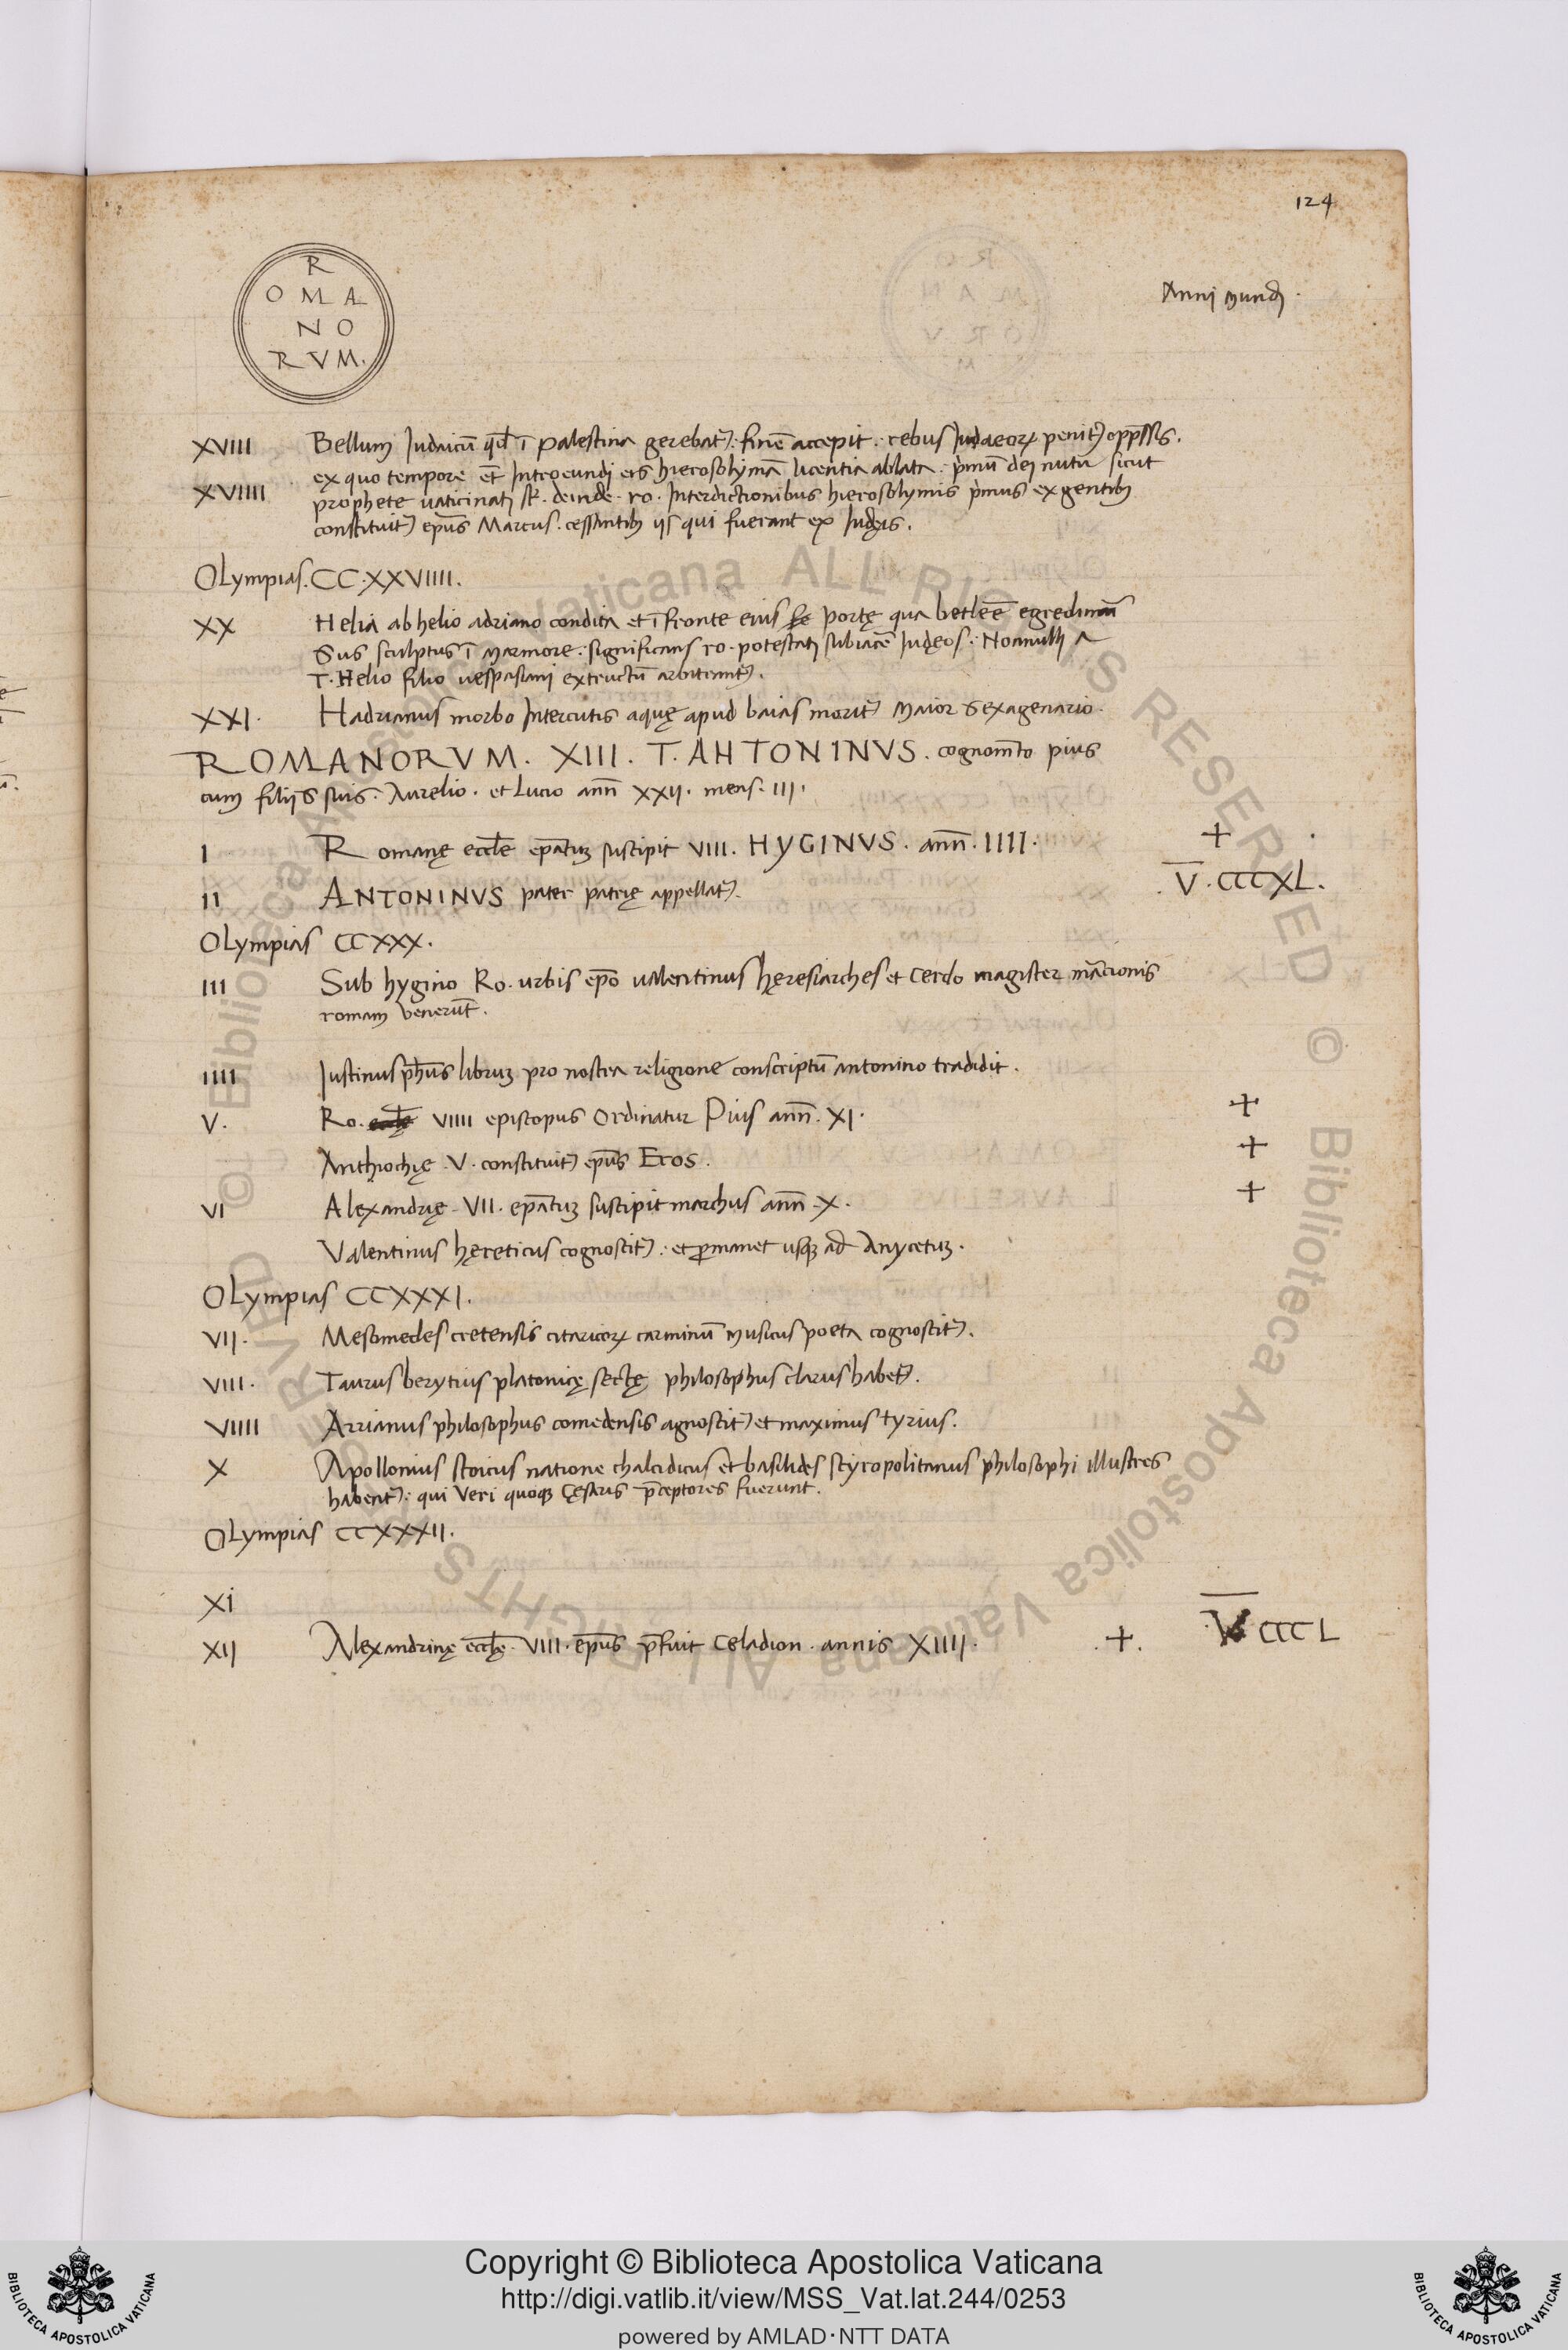 124
R
OMA
NO
RVM.
Anni mundj.
XVIII Bellum Judaicū qd̄ ī palestina gerebat᷒: finē accepit: rebus Judaeoꝝ penit᷒ opp̄ssis.
ex quo tempore et̄ Introeundj eis hierosolymā licentia ablata: p̀mū dej nutu sicut
XVIIII prophete uaticinatj st̄. deinde. ro. Interdictionibus hierosolymis p̀mus ex gentib᷒
constituit᷒ ep̄us Marcus. cessantib᷒ ijs qui fuerant ex Iudęis.
Olympias. CC.XXVIIII.
XX Helia ab helio adriano condita et ī fronte eius portę qua betleē egredimur̄
Sus sculptus ī marmore: significans ro. potestatj subiacē Judęos: Nonnullj a
T. Helio filio uespasianj extructū arbitrant᷒.
XXI. Hadrianus morbo Intercutis aquę apud baias morit᷒ maior sexagenario.
ROMANORVM. XIII. T. ANTONINVS. cognom̄to pius
cum filijs suis. Aurelio. et Lucio ann̄ XXIJ. mens. IIJ.
I Romanę eccl̄e ep̄atuꝫ suscipit VIII. HYGINVS. ann̄. IIII. +
II ANTONINVS pater patrię appellat᷒. V̄.CCCXL.
Olympias CCXXX.
III Sub hygino Ro. urbis ep̄o ualentinus hęresiarches et Cerdo magister mācionis
romam uenerūt.
IIII Justinus ph̄us libruꝫ pro nostra religione conscriptū antonino tradidit.
V. Ro. VIIII episcopus Ordinatur Pius ann̄. XI. +
Anthiochię. V. constituit᷒ ep̄us Eros. +
VI Alexandrię. VII. ep̄atuꝫ suscipit marchus ann̄. X. +
Valentinus hęreticus cognoscit᷒: et ꝑmanet usqꝫ ad Anycetuꝫ.
Olympias CCXXXI.
VII. Mesomedes cretensis citaricoꝝ carminū musicus poeta cognoscit᷒.
VIII. Taurus berytius platonicę sectę philosophus clarus habet᷒.
VIIII Arrianus philosophus comedensis agnoscit᷒ et maximus tyrius.
X Apollonius stoicus natione chalcidicus et basilides scyropolitanus philosophi illustres
habent᷒: qui Veri quoqꝫ Cęsaris p̄ceptores fuerunt.
Olympias CCXXXII.
XI
XII Alexandrinę eccl̄ę. VIII. ep̄us p̄fuit Celadion. annis XIIIJ. .+. V̄ CCCL
Copyright © Biblioteca Apostolica Vaticana
http://digi.vatlib.it/view/MSS_Vat.lat.244/0253
powered by AMLAD·NTT DATA
BIBLIOTECA APOSTOLICA VATICANA
BIBLIOTECA APOSTOLICA VATICANA